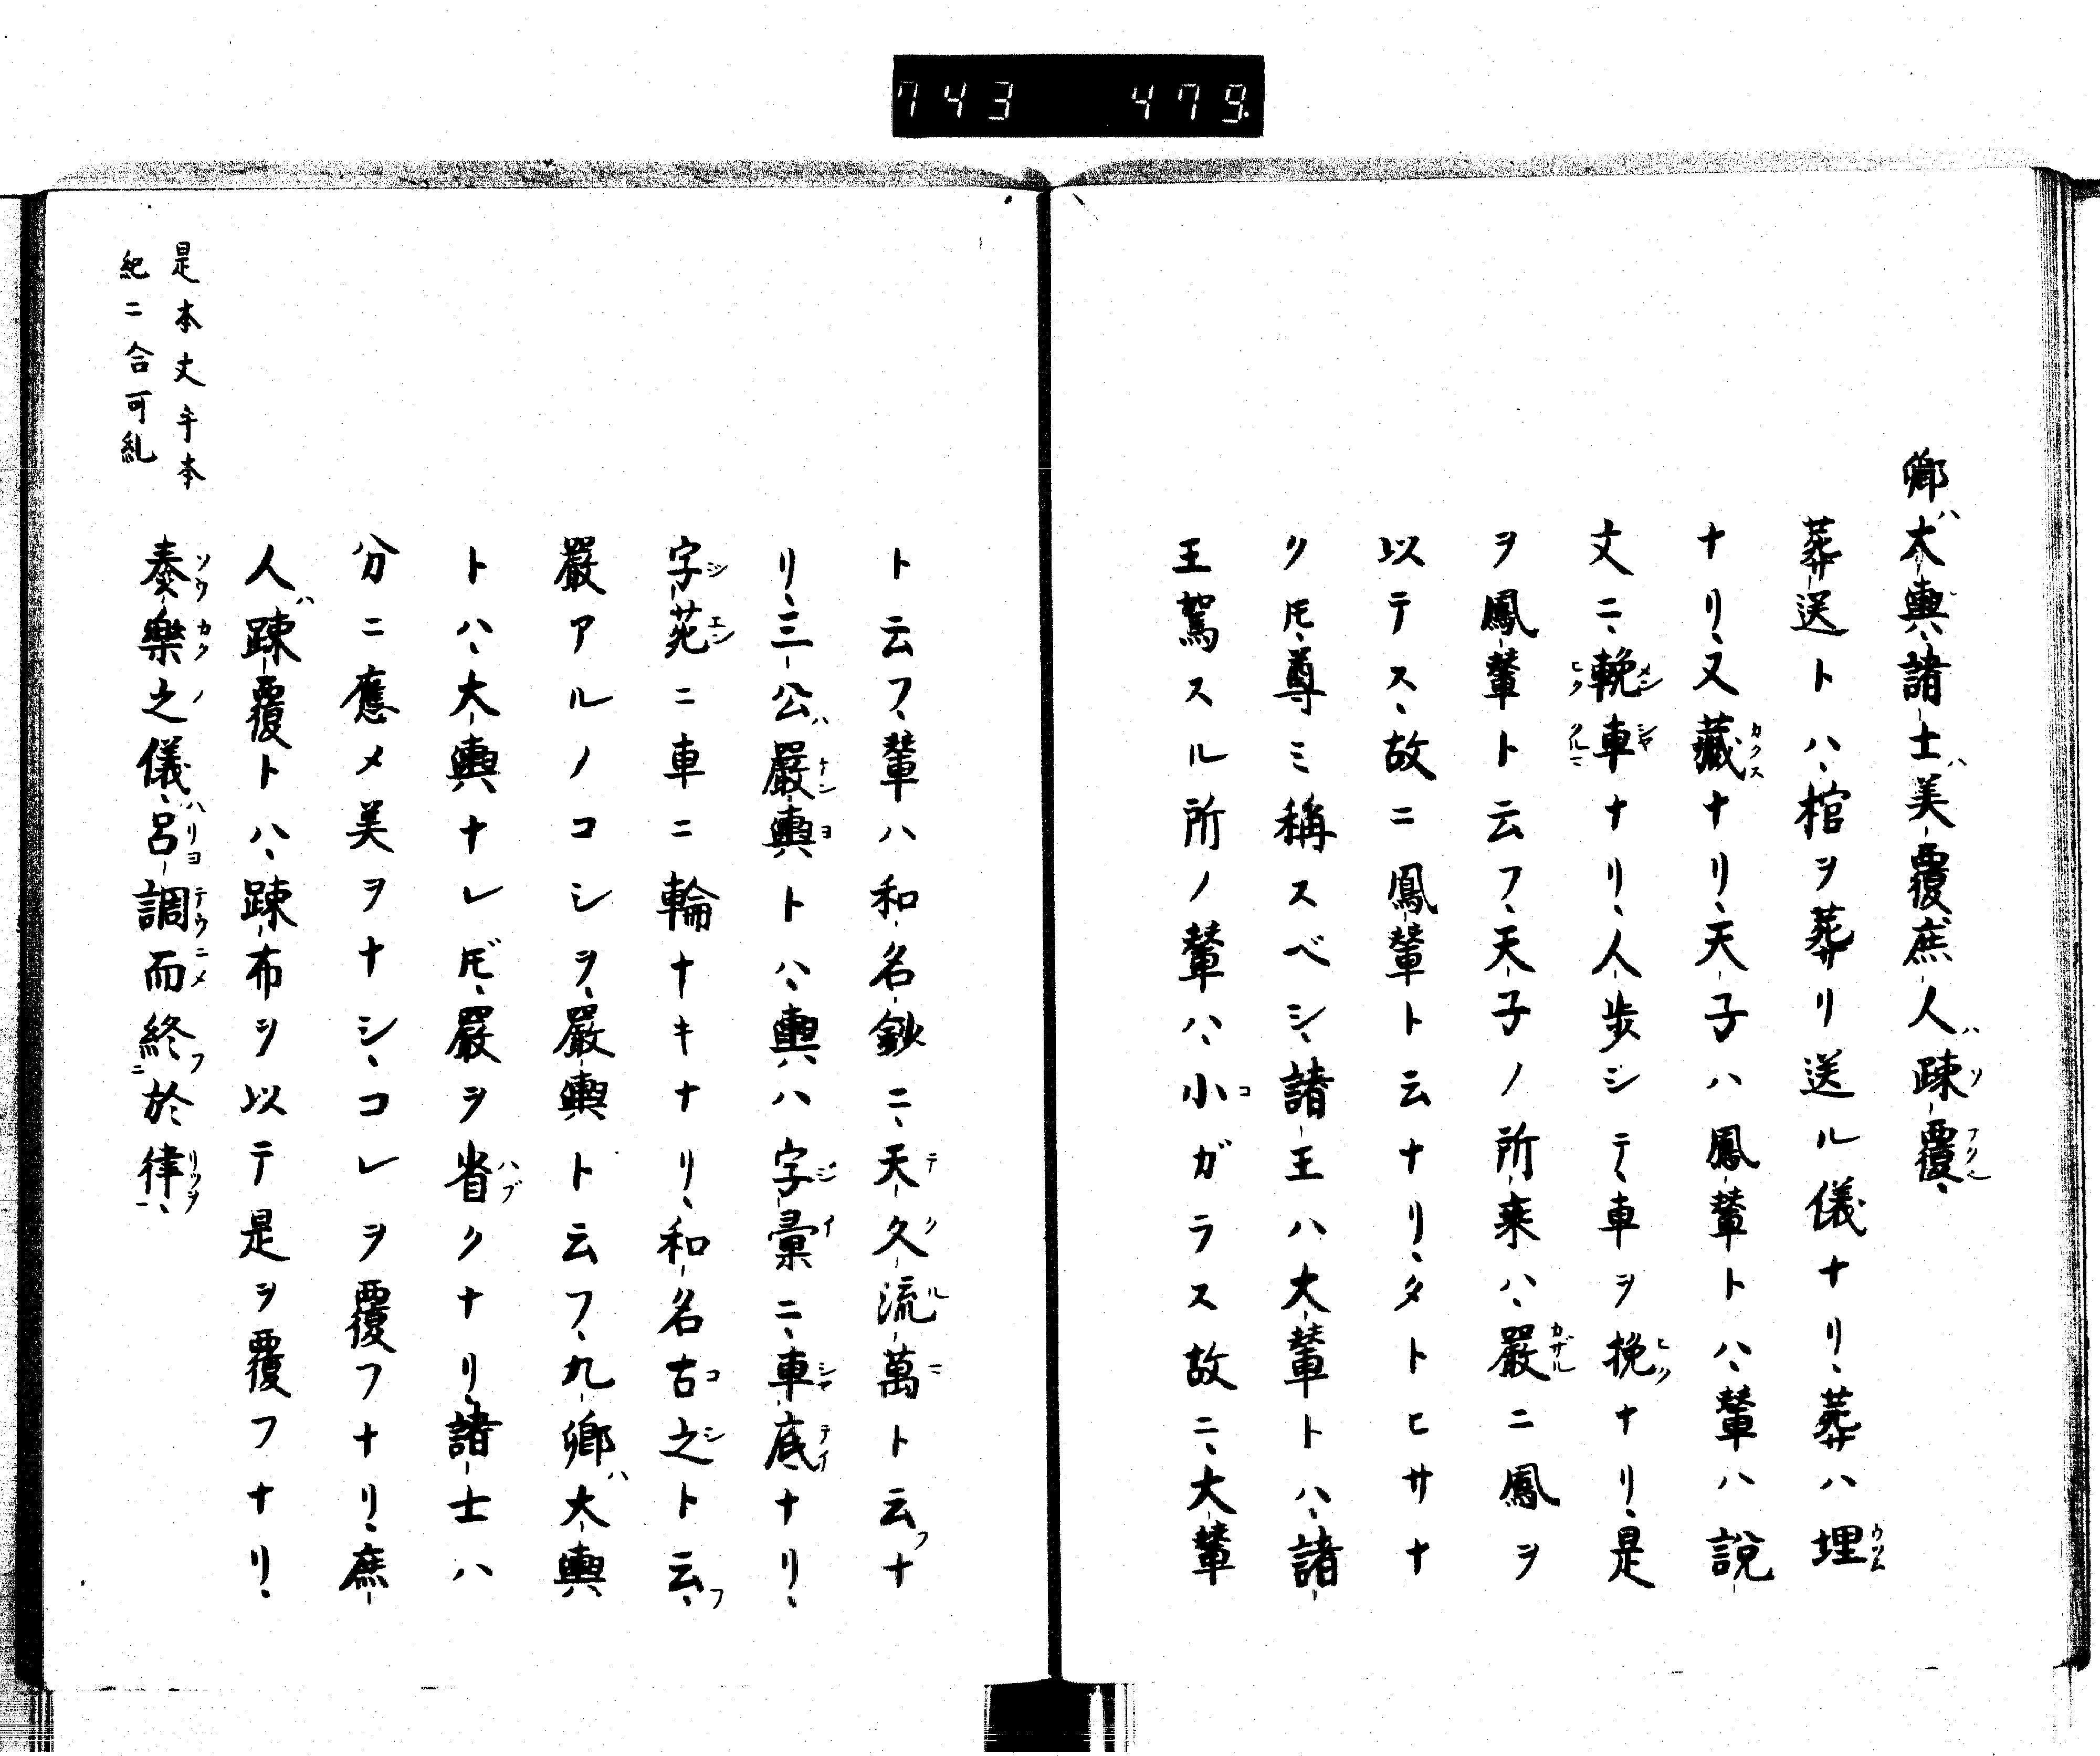 743 479
卿ハ大輿、諸士ハ美覆庶人ハ踈覆、
葬送トハ、棺ヲ葬リ送ル儀ナリ、葬ハ埋
ナリ、又藏ナリ、天子ハ鳳輦トハ、輦ハ説
文ニ、輓車ナリ、人歩シテ、車ヲ挽ナリ、是
ヲ鳳輦ト云フ、天子ノ所乗ハ、嚴ニ鳳ヲ
以テス、故ニ鳳輦ト云ナリ、タトヒサナ
クトモ、尊ミ稱スベシ、諸王ハ大輦トハ、諸
王駕スル所ノ輦ハ、小ガラス故ニ、大輦
ト云フ、輦ハ和名鈔ニ、天久流萬ト云フナ
リ、三公ハ嚴輿トハ、輿ハ字彙ニ、車底ナリ、
字苑ニ車ニ輪ナキナリ、和名古之ト云フ、
嚴アルノコシヲ、嚴輿ト云フ、九卿ハ大輿
トハ、大輿ナレドモ、嚴ヲ省クナリ、諸士ハ
分ニ應メ美ヲナシ、コレヲ覆フナリ、庶
人ハ踈覆トハ、踈布ヲ以テ是ヲ覆フナリ、
是本文手本
紀ニ合可糺
奏樂之儀、呂調而終於律、